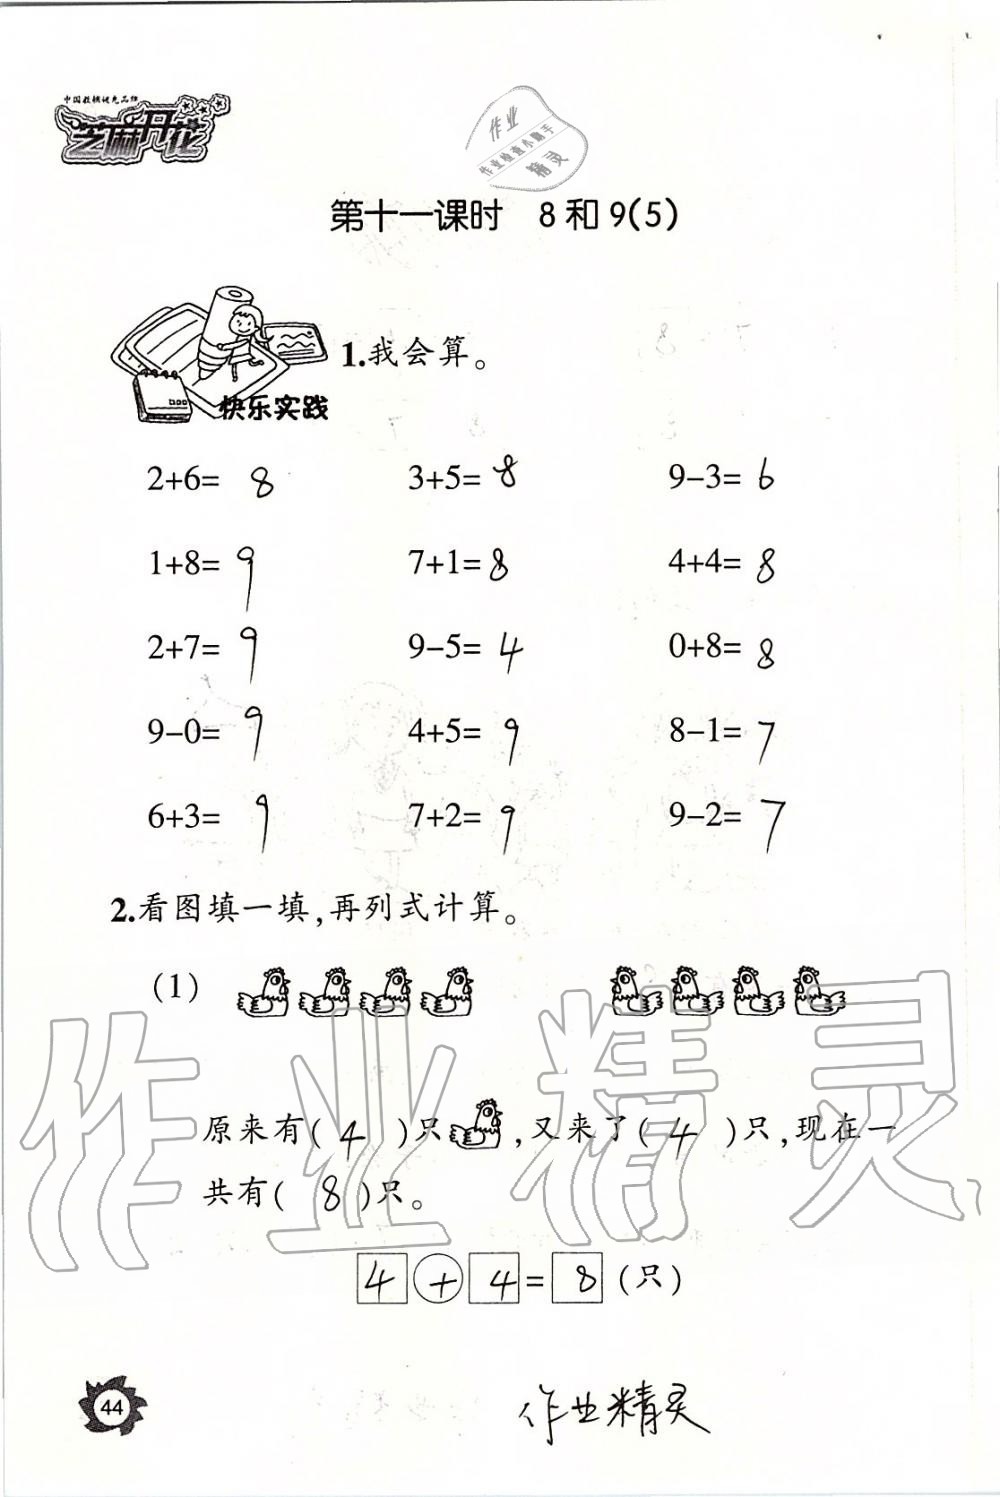 中国教辅优先品牌
芝麻开花
作业
作业检查小助手
精灵
第十一课时 8和9(5)
1.我会算。
快乐实践
2+6= 8 3+5= 8 9-3= 6
1+8= 9 7+1= 8 4+4= 8
2+7= 9 9-5= 4 0+8= 8
9-0= 9 4+5= 9 8-1= 7
6+3= 9 7+2= 9 9-2= 7
2.看图填一填,再列式计算。
(1)
作业精灵
原来有( 4 )只 ,又来了( 4 )只,现在一
共有( 8 )只。
4 + 4 = 8 (只)
44
作业精灵